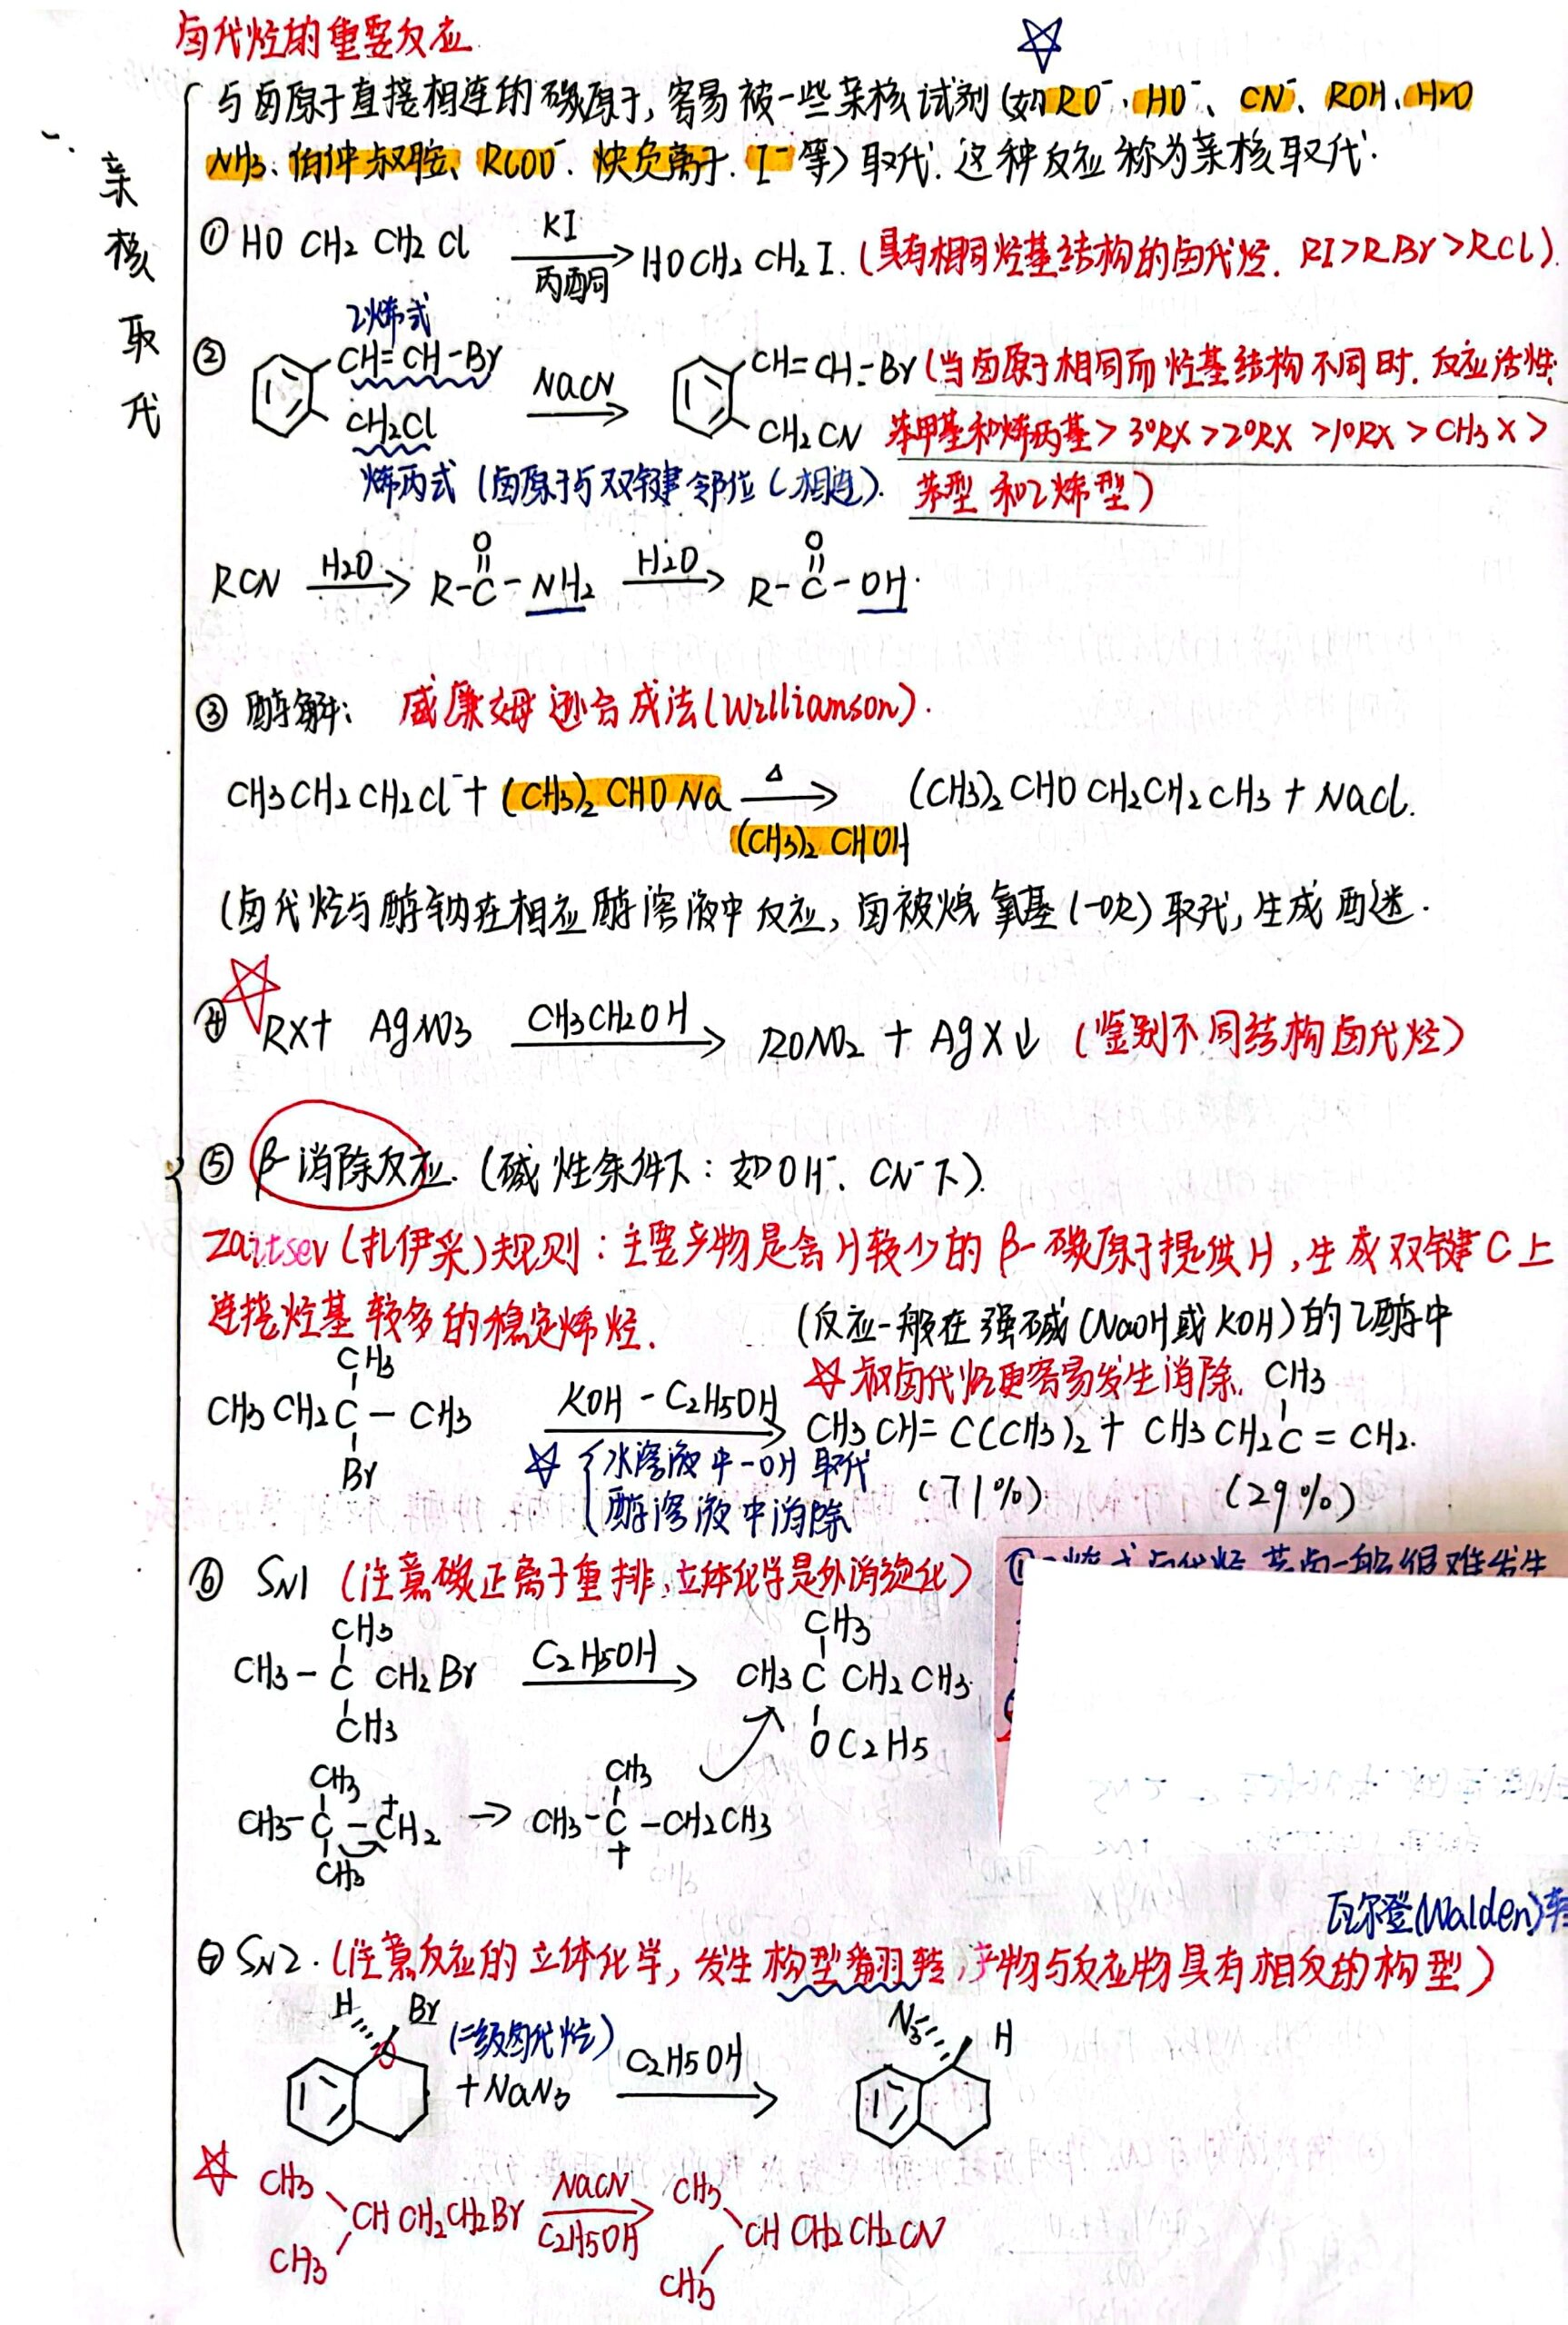 卤代烃的重要反应
一、亲核取代
与卤原子直接相连的碳原子,容易被一些亲核试剂(如RO⁻、HO⁻、CN⁻、ROH、H₂O
NH₃、伯仲叔胺、RCOO⁻、炔负离子、I⁻等)取代.这种反应称为亲核取代.
① HOCH₂CH₂Cl —KI/丙酮→ HOCH₂CH₂I.(具有相同烃基结构的卤代烃. RI>RBr>RCl).
乙烯式
② CH=CH-Br —NaCN→ CH=CH-Br (当卤原子相同而烃基结构不同时.反应活性:
CH₂Cl CH₂CN 苯甲基和烯丙基>3°RX>2°RX>1°RX>CH₃X>
烯丙式(卤原子与双键邻位(相连). 苯型和乙烯型)
RCN —H₂O→ R-C(=O)-NH₂ —H₂O→ R-C(=O)-OH.
③ 醇解: 威廉姆逊合成法(Williamson).
CH₃CH₂CH₂Cl + (CH₃)₂CHONa —△/(CH₃)₂CHOH→ (CH₃)₂CHOCH₂CH₂CH₃ + NaCl.
(卤代烃与醇钠在相应醇溶液中反应,卤被烷氧基(-OR)取代,生成醚.
④ RX + AgNO₃ —CH₃CH₂OH→ RONO₂ + AgX↓ (鉴别不同结构卤代烃)
⑤ β-消除反应.(碱性条件下:如OH⁻、CN⁻下).
Zaitsev(扎伊采)规则:主要产物是含H较少的β-碳原子提供H,生成双键C上
连接烃基较多的稳定烯烃. (反应一般在强碱(NaOH或KOH)的乙醇中
☆叔卤代烃更容易发生消除.
CH₃CH₂C(CH₃)(Br)-CH₃ —KOH-C₂H₅OH→ CH₃CH=C(CH₃)₂ + CH₃CH₂C(CH₃)=CH₂.
☆{水溶液中-OH取代 (71%) (29%)
醇溶液中消除
⑥ SN1 (注意碳正离子重排,立体化学是外消旋化)
乙烯式卤代烃 苯卤一般很难发生
CH₃-C(CH₃)(CH₃)CH₂Br —C₂H₅OH→ CH₃C(CH₃)(OC₂H₅)CH₂CH₃
CH₃-C(CH₃)(CH₃)-C⁺H₂ → CH₃-C⁺(CH₃)-CH₂CH₃
瓦尔登(Walden)转
⑦ SN2.(注意反应的立体化学,发生构型翻转,产物与反应物具有相反的构型)
H Br (二级卤代烃) +NaN₃ —C₂H₅OH→ N₃ H
☆ CH₃ CH₃ CHCH₂CH₂Br —NaCN/C₂H₅OH→ CH₃ CH₃ CHCH₂CH₂CN